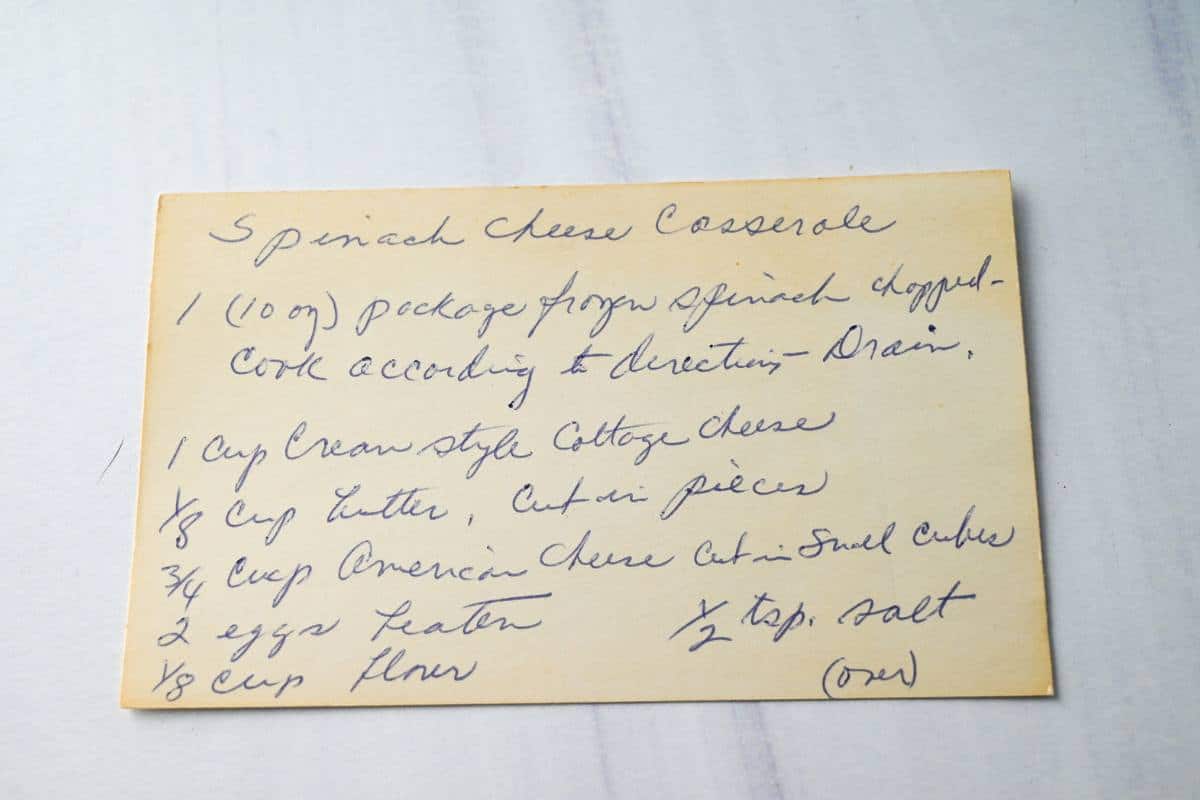 Spinach Cheese Casserole
1 (10 oz) package frozen spinach chopped-
Cook according to directions - Drain.
1 Cup Cream style Cottage Cheese
1/8 Cup butter, Cut in pieces
3/4 Cup American Cheese Cut in Small Cubes
2 eggs beaten 1/2 tsp. salt
1/8 cup flour (over)